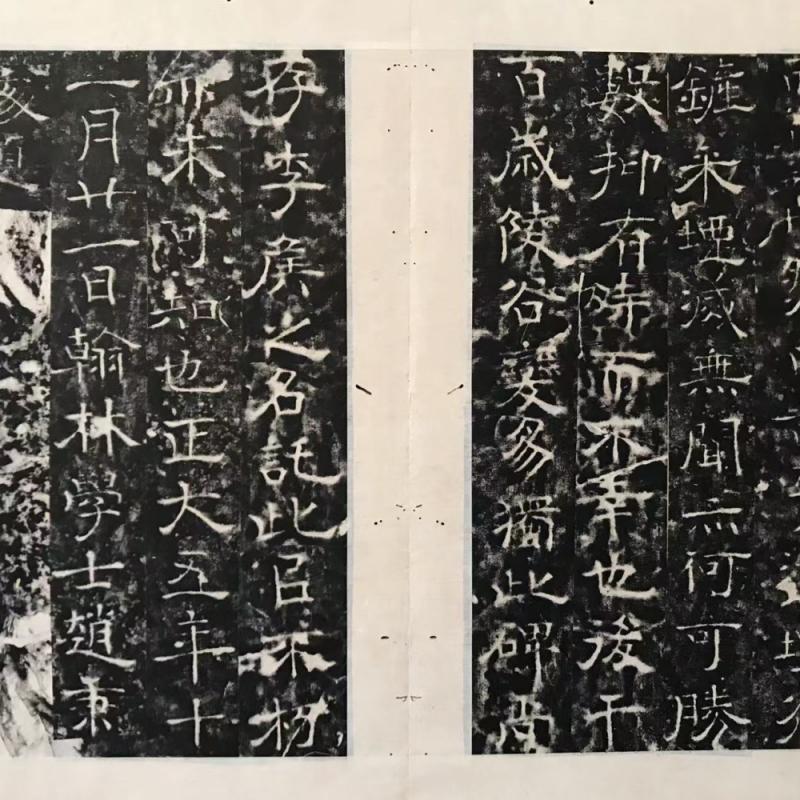 鏟采堙滅無聞亦何可勝
數抑有時而不幸也後千
百歲陵谷變易獨此碑尚
存李侯之名託此以不朽
亦未可知也正大五年十
一月廿一日翰林學士趙秉